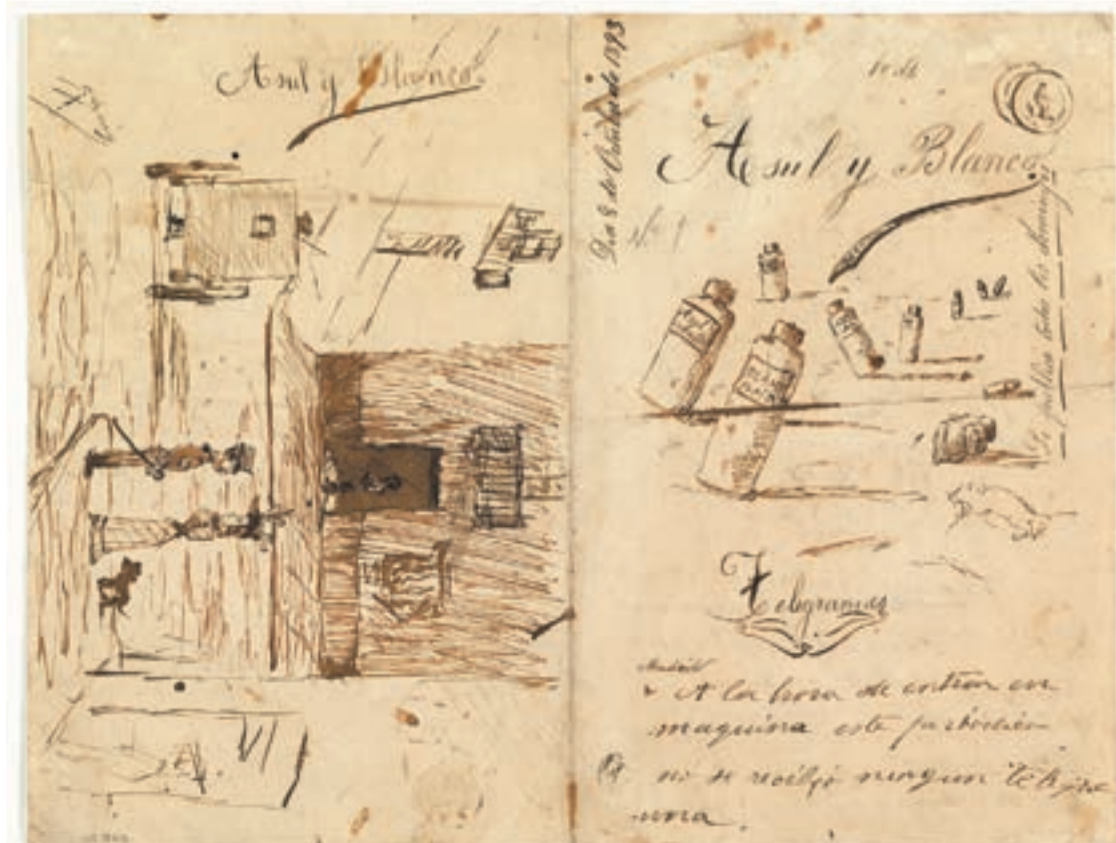 Asul y Blanco.
Dia 8 de Octubre de 1893
Asul y Blanco.
Nº 1
Se publica todos los domingos
Telegramas
Madrid
A la hora de entrar en
maquina este
no se recibjo ningun telegra
ma.